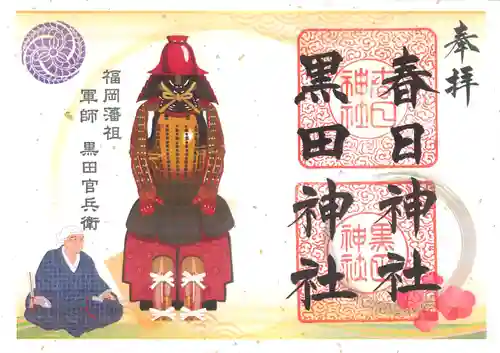 奉拝
春日神社
黒田神社
春日神社
黒田神社
福岡藩祖
軍師 黒田官兵衛